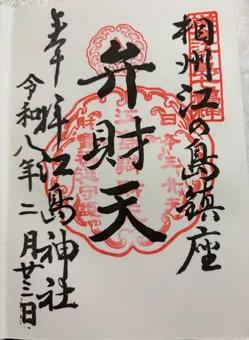 相州江の島鎮座
弁財天
奉拝
江島神社
令和八年二月廿三日